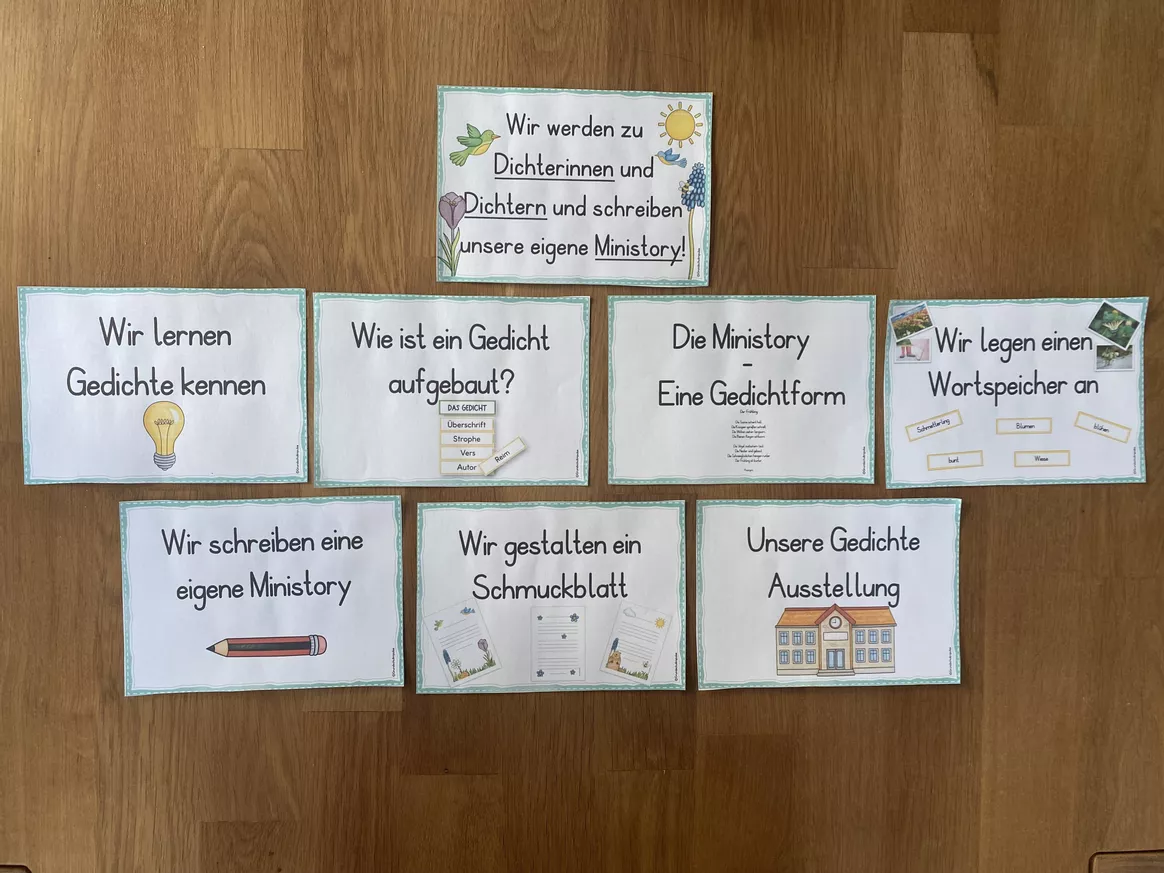 Wir werden zu
Dichterinnen und
Dichtern und schreiben
unsere eigene Ministory!
Wir lernen
Gedichte kennen
Wie ist ein Gedicht
aufgebaut?
DAS GEDICHT
Überschrift
Strophe
Vers
Autor
Reim
Die Ministory
-
Eine Gedichtform
Der Frühling
Wir legen einen
Wortspeicher an
Schmetterling
Blumen
blühen
bunt
Wiese
Wir schreiben eine
eigene Ministory
Wir gestalten ein
Schmuckblatt
Unsere Gedichte
Ausstellung